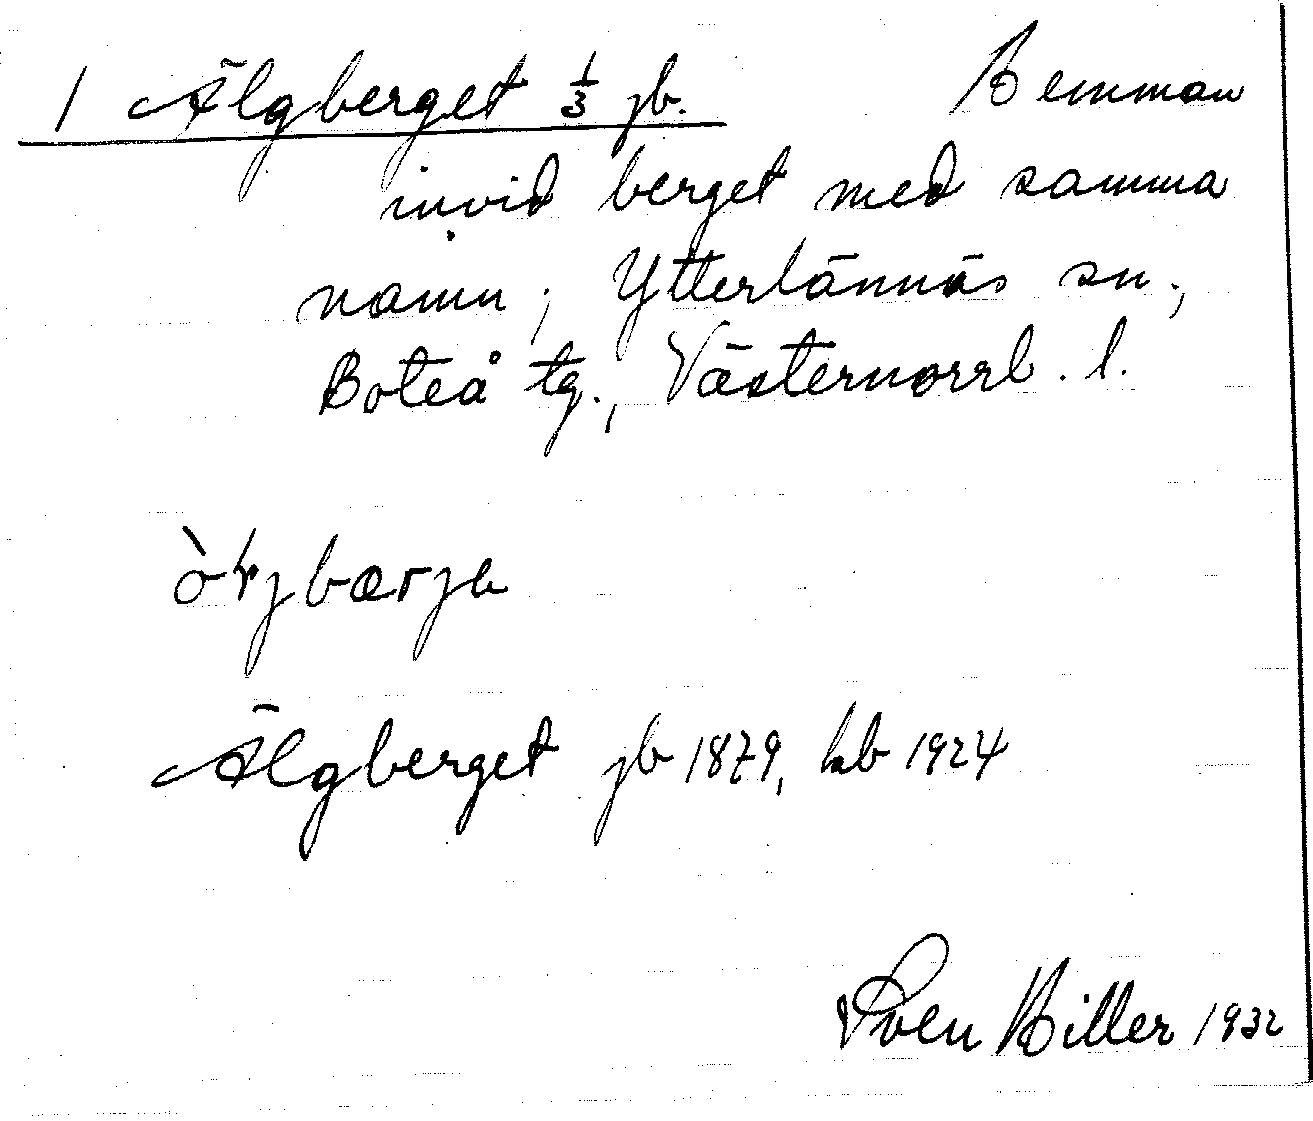 1 Älgberget 1/3 jb. Hemman
invid berget med samma
namn; Ytterlännäs sn.,
Boteå tg., Västernorrl. l.
Älgberget jb 1879, hb 1924
Sven Hiller 1932